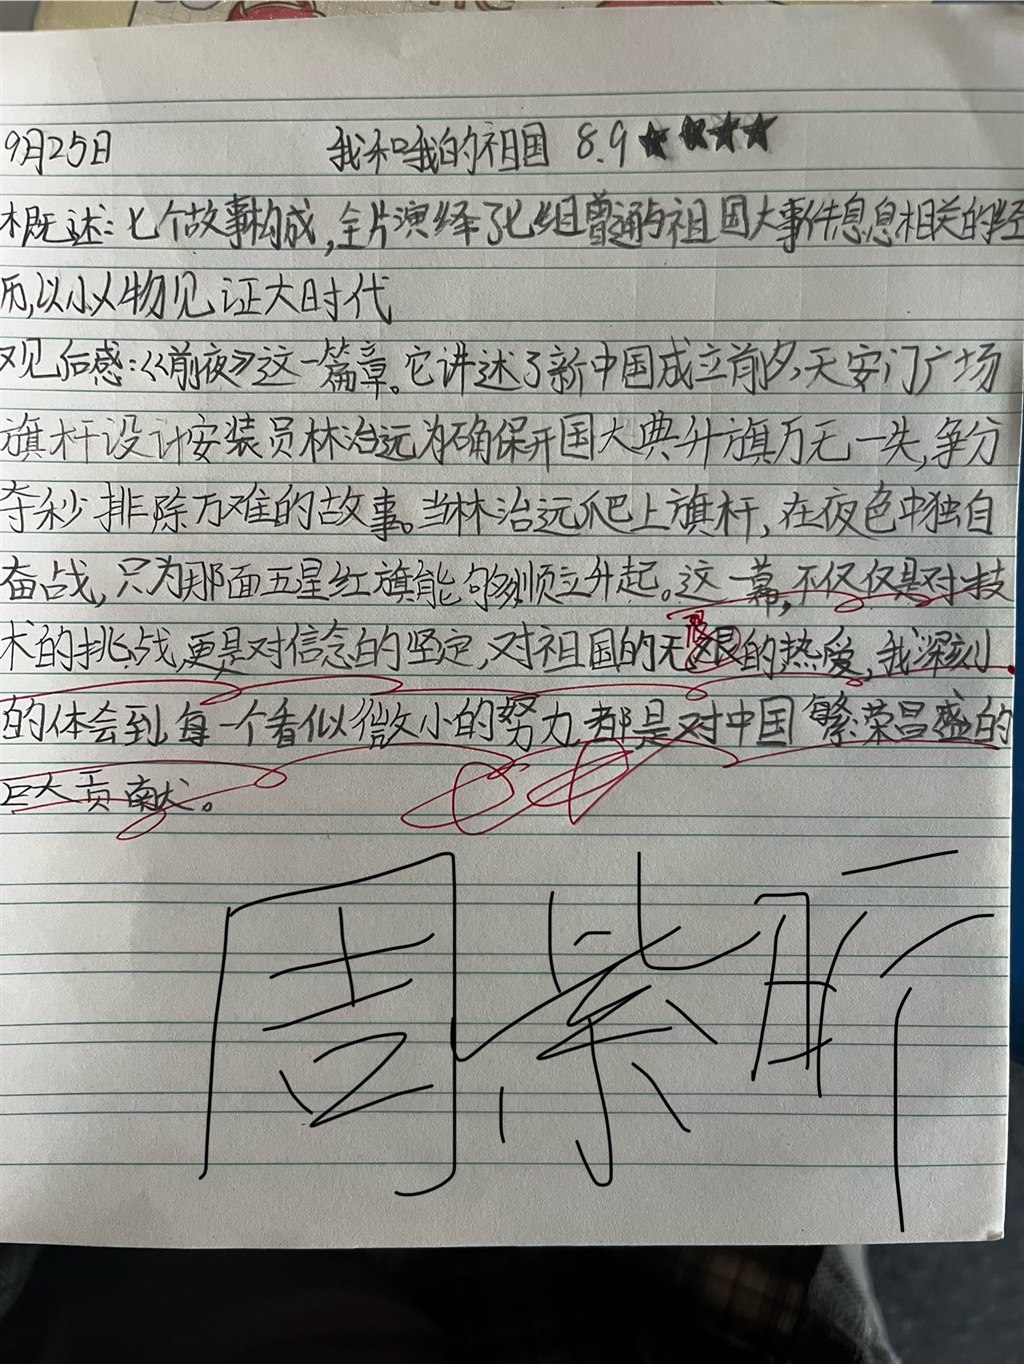 9月25日 我和我的祖国 8.9★★★★
概述:七个故事构成,全片演绎了七组普通与祖国大事件息息相关的经
历,以小人物见证大时代
观后感:《前夜》这一篇章。它讲述了新中国成立前夕,天安门广场
旗杆设计安装员林治远为确保开国大典升旗万无一失,争分
夺秒排除万难的故事。当林治远爬上旗杆,在夜色中独自
奋战,只为那面五星红旗能够顺立升起。这一幕,不仅仅是对技
术的挑战,更是对信念的坚定,对祖国的无限的热爱,我深刻
的体会到每一个看似微小的努力都是对中国繁荣昌盛的
巨大贡献。
周紫昕